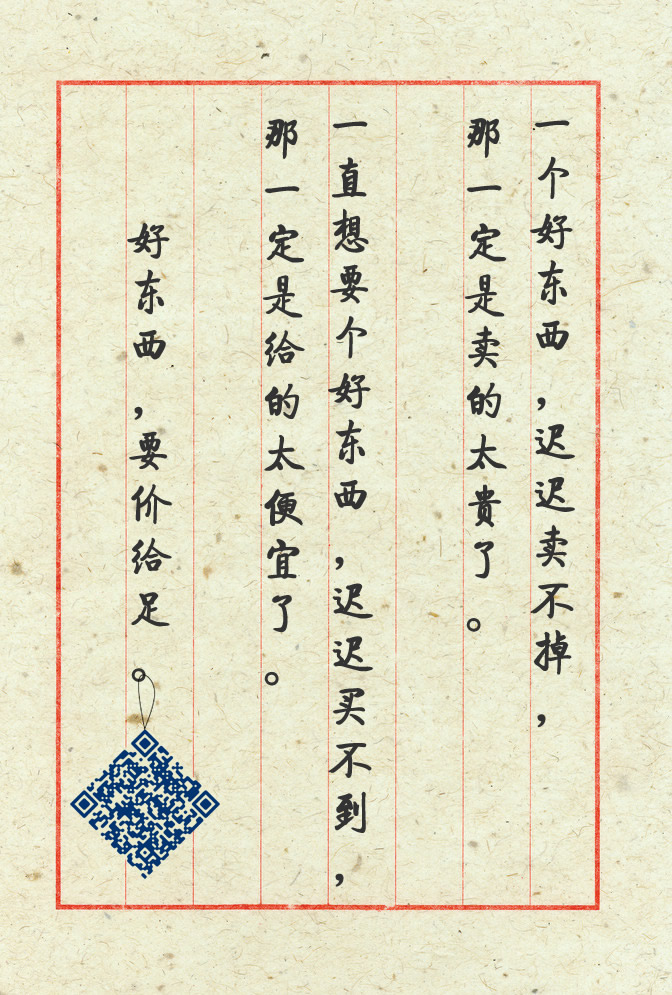 一个好东西，迟迟卖不掉，
那一定是卖的太贵了。
一直想要个好东西，迟迟买不到，
那一定是给的太便宜了。
好东西，要价给足。